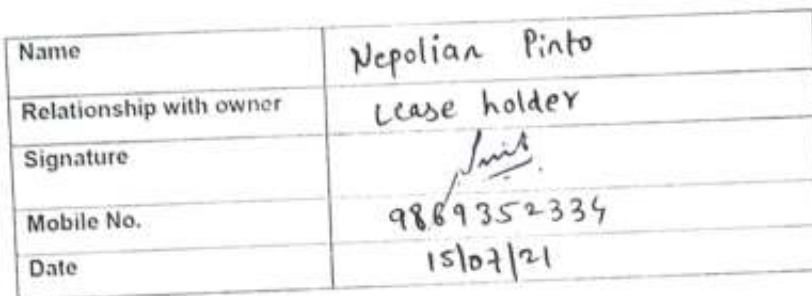 Name Nepolian Pinto
Relationship with owner Lease holder
Signature
Mobile No. 9869352334
Date 15/07/21